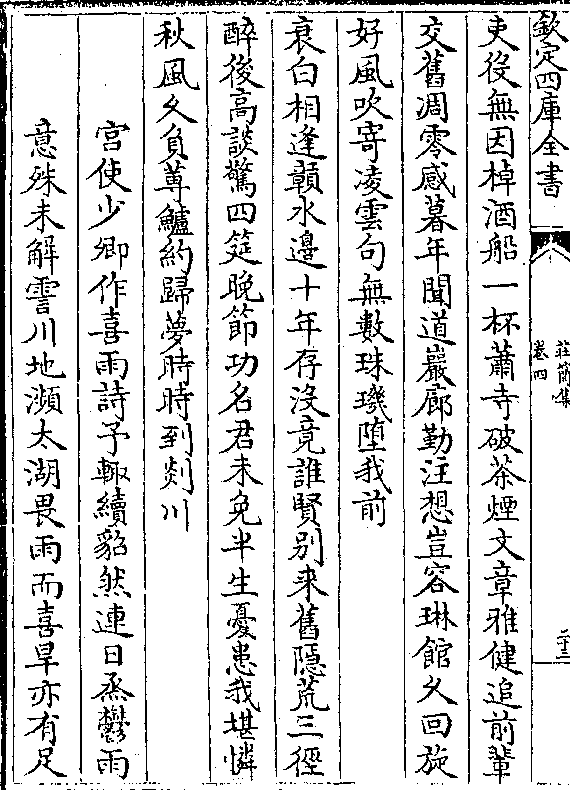 欽定四庫全書
莊簡集
卷四
二十三
吏役無因棹酒船一杯蕭寺破茶煙文章雅健追前輩
交舊凋零感暮年聞道巖廊勤注想豈容琳館久回旋
好風吹寄凌雲句無數珠璣墮我前
衰白相逢贛水邊十年存沒竟誰賢别來舊隱荒三徑
醉後高談驚四筵晚節功名君未免半生憂患我堪憐
秋風久負蓴鱸約歸夢時時到剡川
宮使少卿作喜雨詩予輙續貂然連日烝鬱雨
意殊未解霅川地瀕太湖畏雨而喜旱亦有足